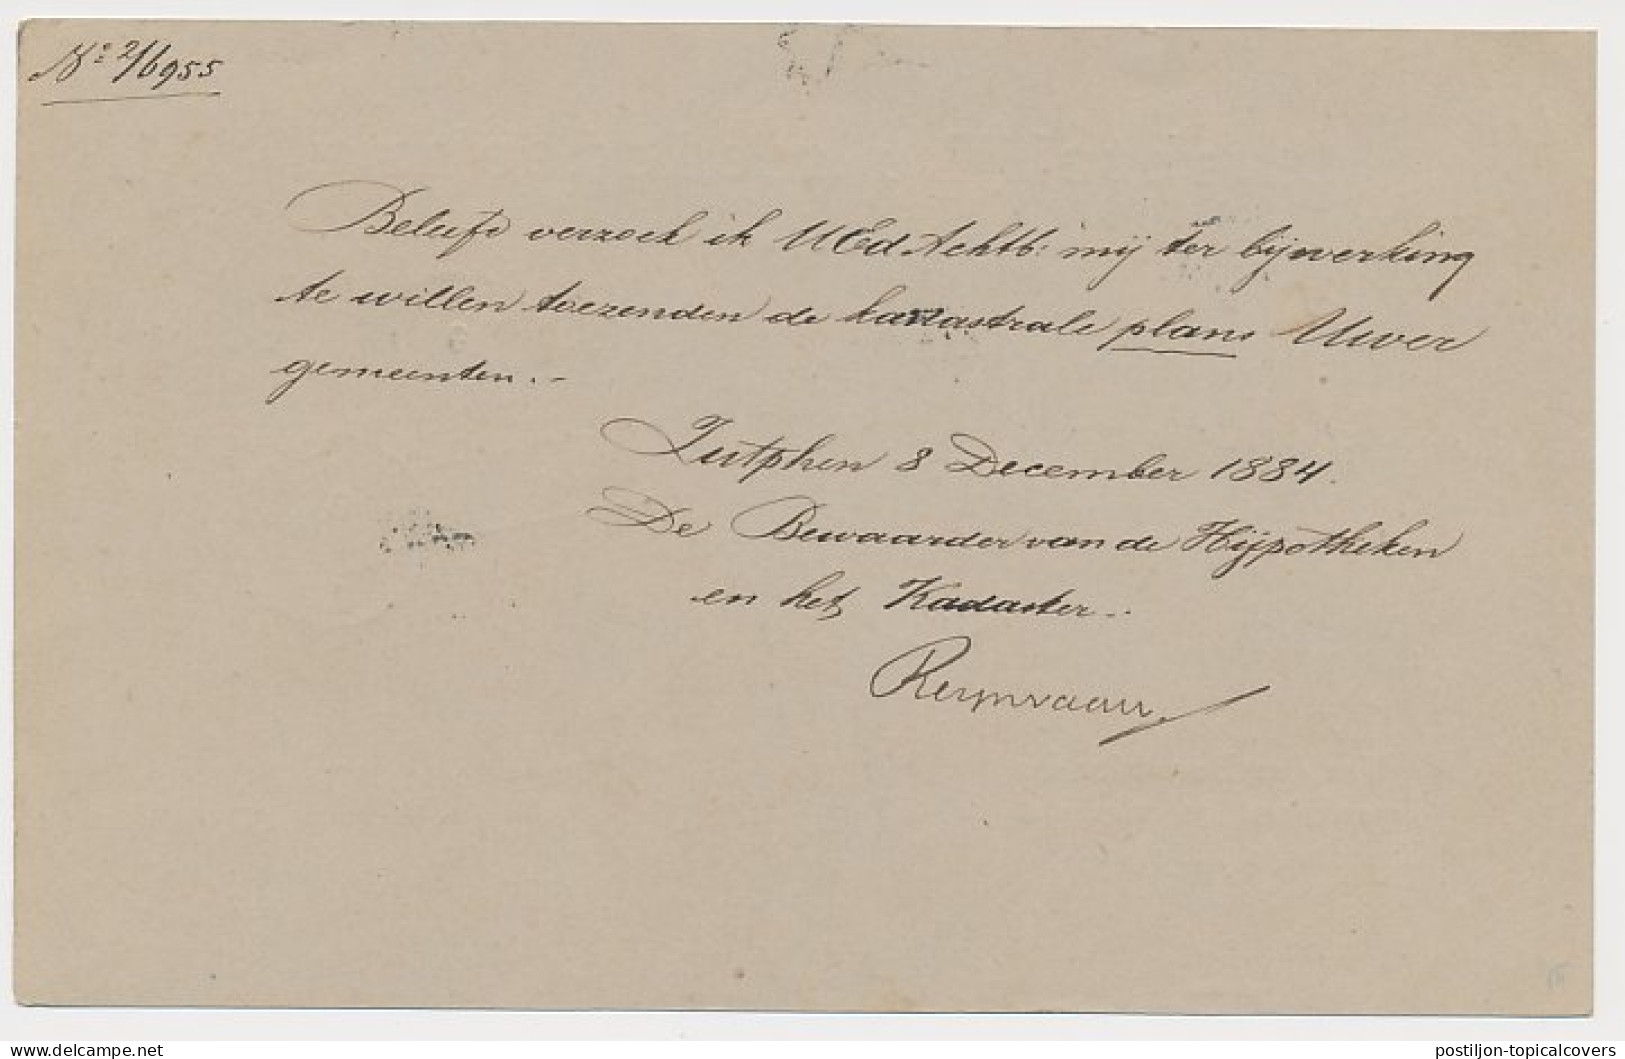 No 2/6955
Beleefd verzoek ik UEdAchtb: mij ter bijwerking
te willen toezenden de kadastrale plans Uwer
gemeenten.-
Zutphen 8 December 1884.
De Bewaarder van de Hijpotheken
en het Kadaster.-
Reijnvaan
postiljon-topicalcovers